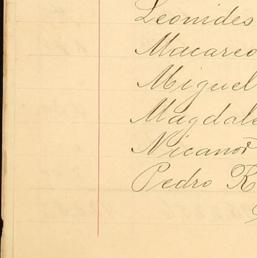 Leonides
Macareo
Miguel
Magdale
Nicanor
Pedro K